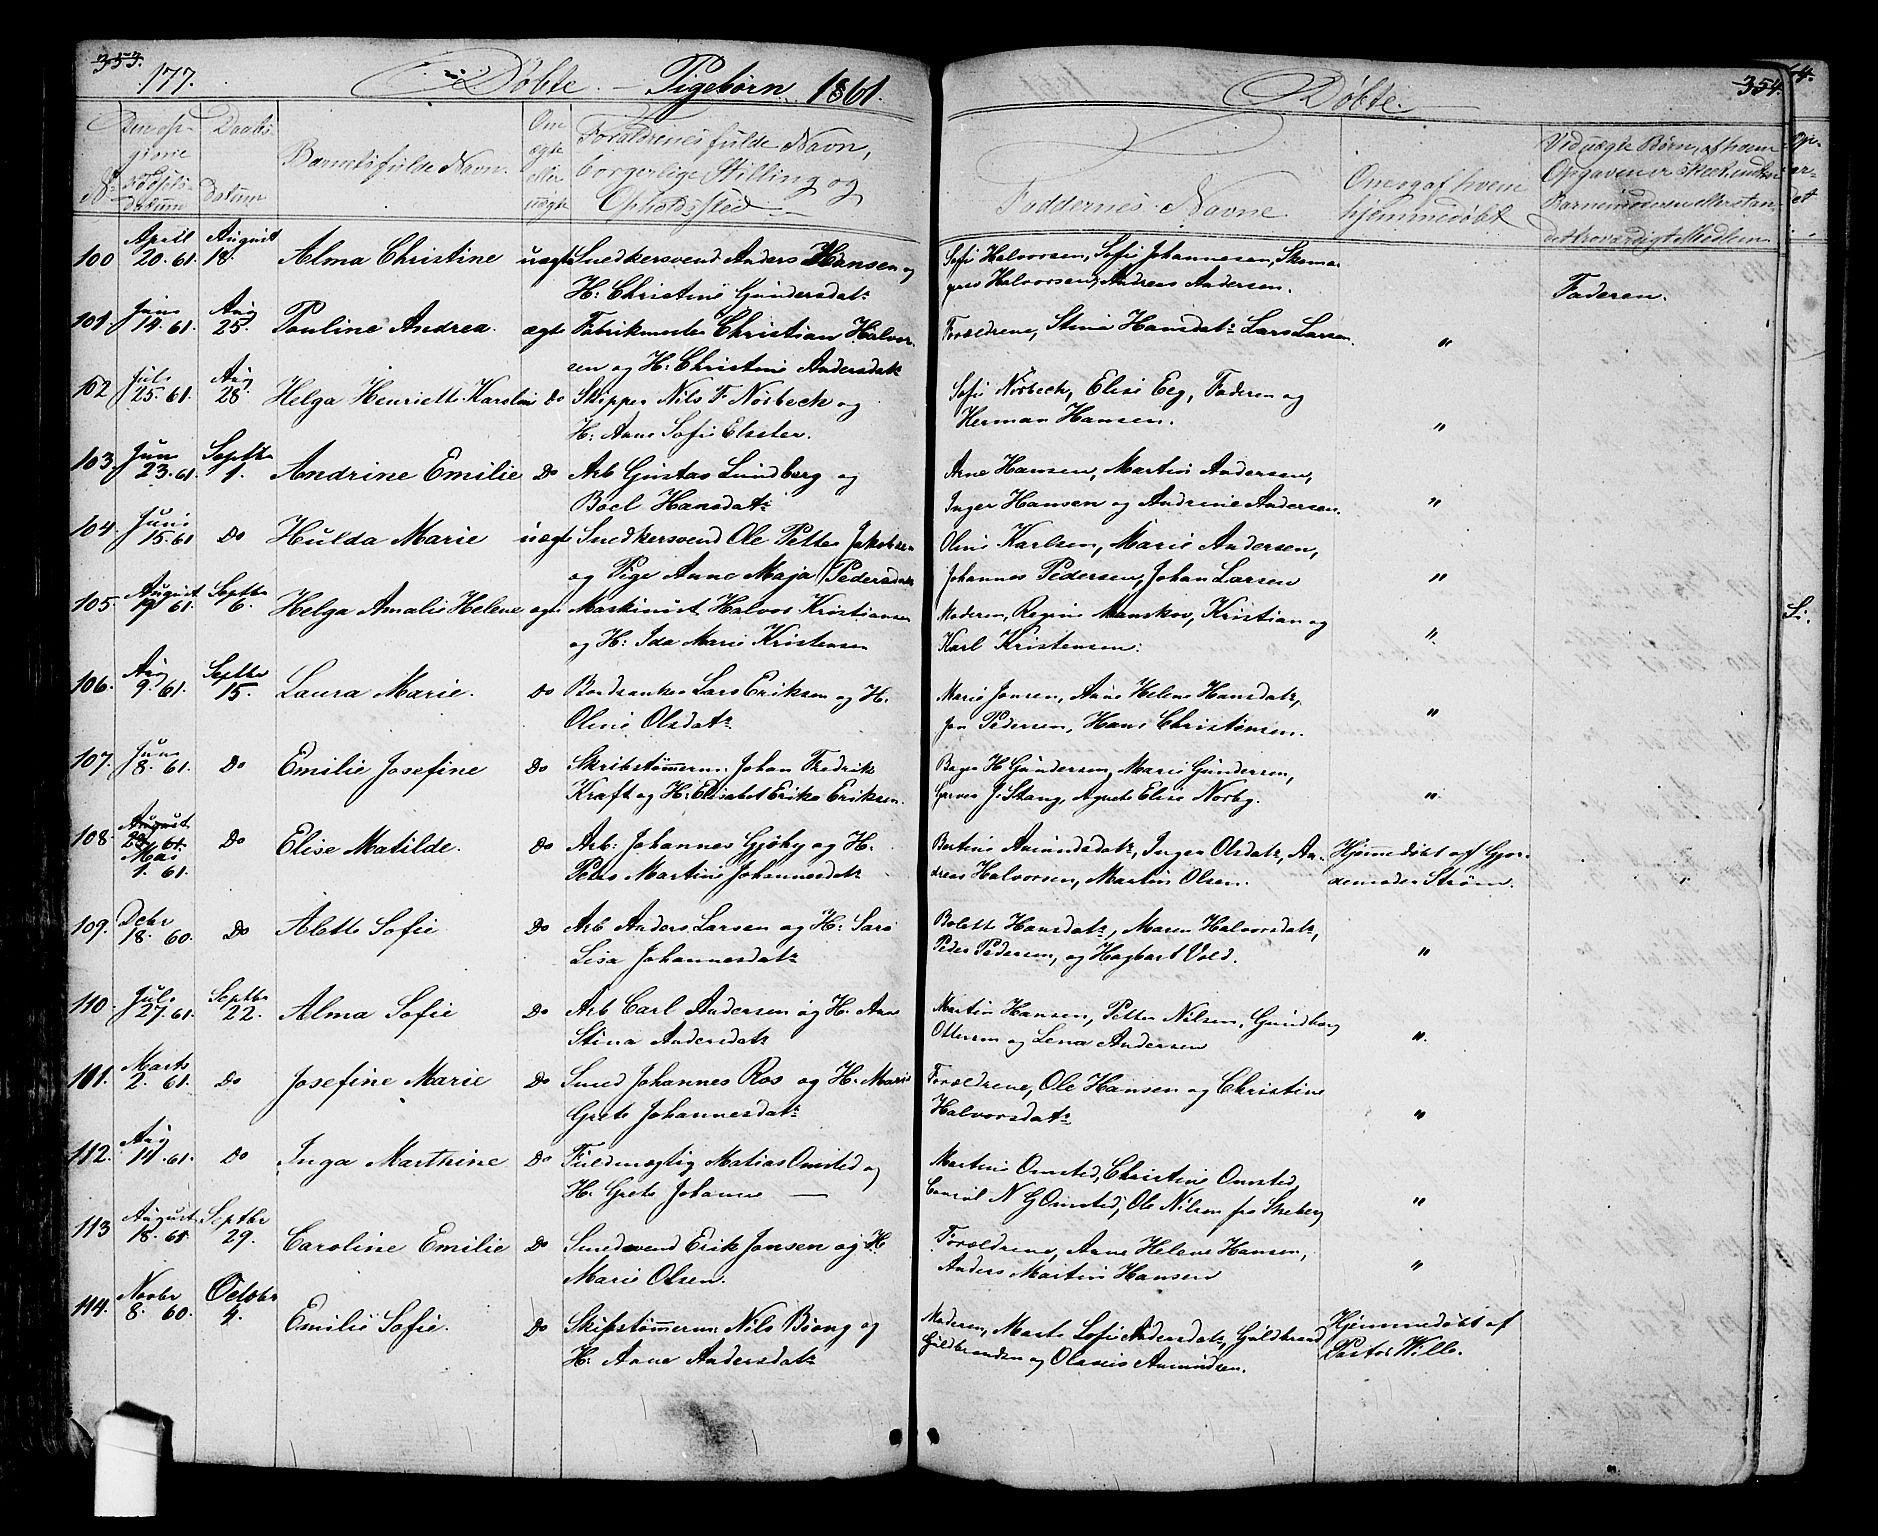 353.
177.
Døbte. — Pigebørn 1861.
Døbte.
354.
Den op-
givne
Fødsels-
datum
Daabs
datum
Barnets fulde Navn.
Om
ægte
eller
uægte
Forældrenes fulde Navn,
borgerlige Stilling og
Opholdssted
Faddernes Navne.
Om og af hvem
hjemmedøbt
Ved uægte Børn, af hvem
Opgaven er skeet, enten
Barnemoderen eller
troværdigt Medlem
100 April 20. 61. August 18. Alma Christine uægte Snedkersvend Anders Hansen og
H: Christine Gundersdatr
Sofie Halvorsen, Sofie Johannesen, Skoma-
ger Halvorsen, Andreas Andersen.
Faderen.
101. Juni 14. 61. Aug 25. Pauline Andrea. ægte Fabrikmester Christian Halvor-
sen og H: Christine Andersdatr
Forældrene, Stine Hansdatr Lars Larsen. "
102 Juli 25. 61. Aug 28. Helga Henriette Karoline Do Skipper Nils F. Nørbeck og
H: Anne Sofie Elster.
Sofie Nørbeck, Elise Eeg, Faderen og
Herman Hansen. "
103. Juni 23. 61. Septbr 1. Andrine Emilie Do Arb Gustav Lundberg og
Boel Hansdatr
Arne Hansen, Martin Andersen,
Inger Hansen og Andrine Andersen. "
104. Juni 15. 61 Do Hulda Marie uægte Snedkersvend Ole Petter Jakobsen
og Pige Anne Maja Pedersdatr
Oline Karlsen, Marie Andersen,
Johannes Pedersen, Johan Larsen "
105. August 19 61. Septbr 6. Helga Amalie Helene ægte Maskinist Halvor Kristiansen
og H: Ida Marie Kristensen
Moderen, Regine Manskov, Kristian og
Karl Kristensen. "
106. Aug 9. 61. Septbr 15. Laura Marie. Do Lars Eriksen og H.
Oline Olsdatr
Marie Jansen, Anne Helene Hansdatr,
Jan Pedersen, Hans Christensen. "
107. Juni 8. 61. Do Emilie Josefine Do Skibstømmerm: Johan Fredrik
Kraft og H: Elisabet Erika Eriksen.
Bager H Gundersen, Marie Gundersen,
Garver J. Stang, Agnete Elise Norby. "
108. August 61. Mai 1. 61. Do Elise Matilde. Do Arb: Johannes Gjøby og H.
Petra Martine Johannesdatr
Bertine Amundsdatr, Inger Olsdatr, An-
dreas Halvorsen, Martin Olsen.
Hjemmedøbt af Gjor-
demoder Strøm.
109. Decbr 18. 60. Do Alette Sofie Do Arb Anders Larsen og H: Sara
Lisa Johannesdatr
Bolette Hansdatr, Maren Halvorsdatr,
Peder Pedersen, og Hagbart Vold. "
110. Juli 27. 61. Septbr 22. Alma Sofie Do Arb Carl Andersen og H. Anne
Stina Andersdatr
Martin Hansen, Petter Nilsen, Gunborg
Ottersen og Lena Andersen ".
111. Marts 2. 61. Do Josefine Marie Do Smed Johannes Ros og H. Maria
Grete Johannesdatr
Forældrene, Ole Hansen og Christine
Halvorsdatr "
112. Aug 11. 61. Do Inga Marthine Do Fuldmægtig Matias Omsted og
H. Grete Johanne —
Martine Omsted, Christine Omsted,
Consul N G Omsted, Ole Nilsen fra Skeberg "
113 August 18. 61. Septbr 29. Caroline Emilie Do Smedsvend Erik Jansen og H
Marie Olsen.
Forældrene, Anne Helene Hansen,
Anders Martin Hansen "
114. Novbr 8. 60. October 4. Emilie Sofie. Do Skibstømmerm: Nils Biong og
H. Anne Andersdatr
Moderen, Marte Sofie Andersdatr, Guldbrand
Guldbrandsen og Olaus Amundsen.
Hjemmedøbt af
Pastor Wille.